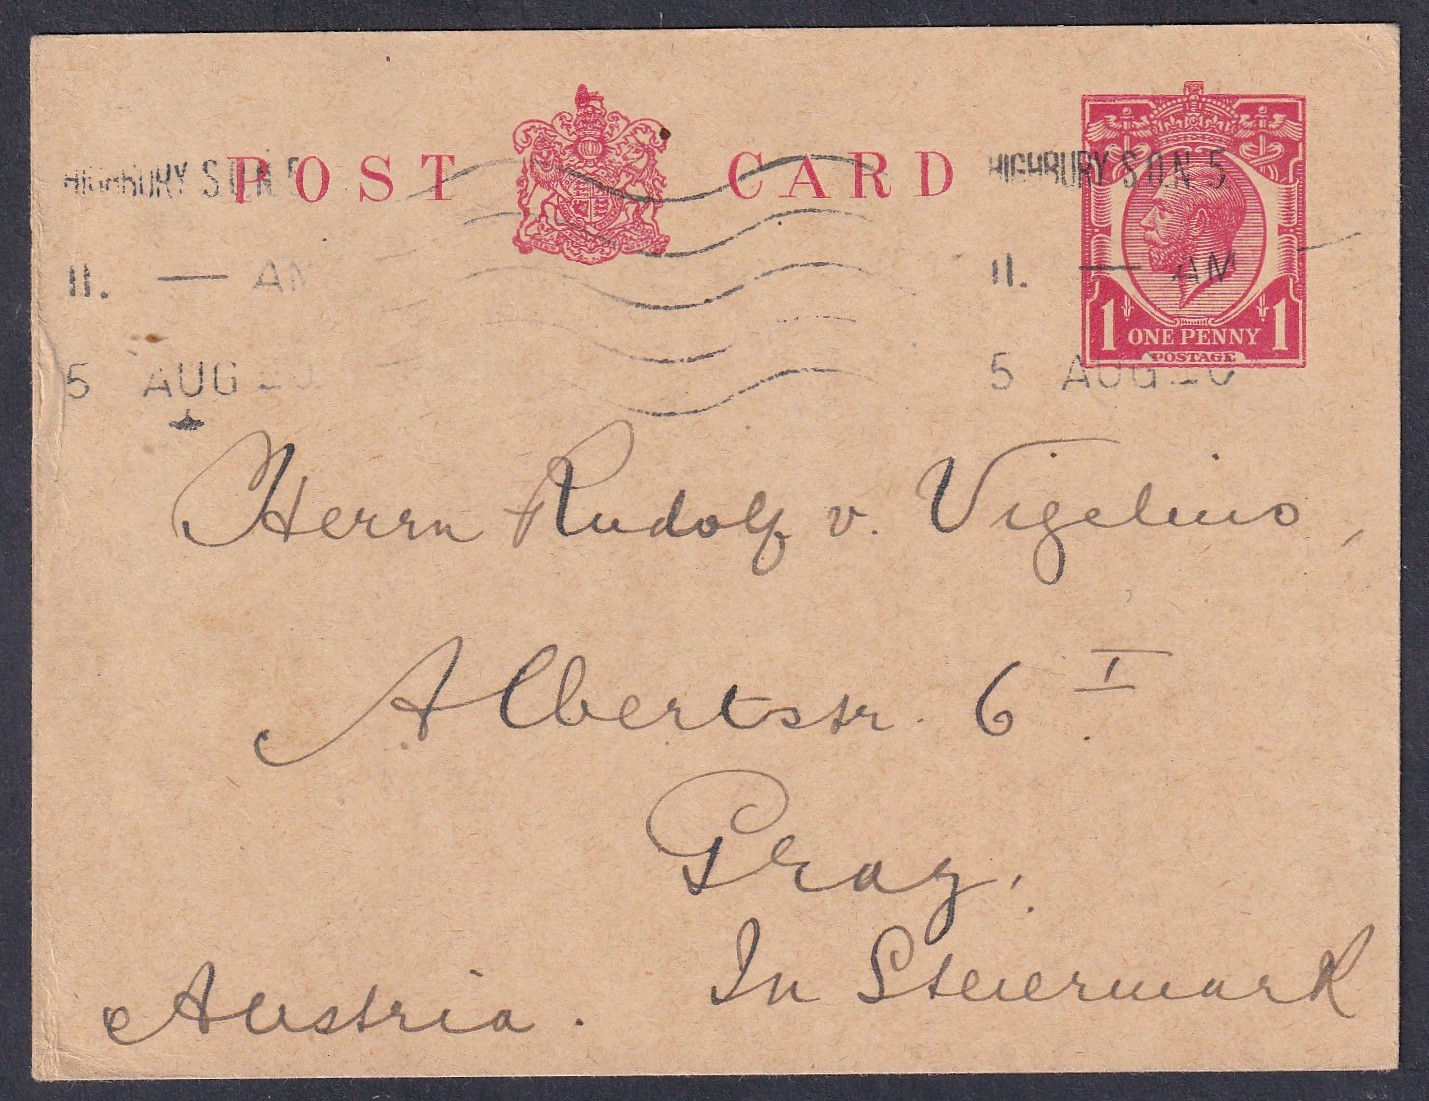 POST CARD
HIGHBURY S.O.N 5
HIGHBURY S.O.N 5
11. — AM
11. — AM
5 AUG 20
5 AUG 20
1 ONE PENNY 1
POSTAGE
Herrn Rudolf v. Vigelino,
Albertstr. 6 I
Graz,
In Steiermark
Austria.